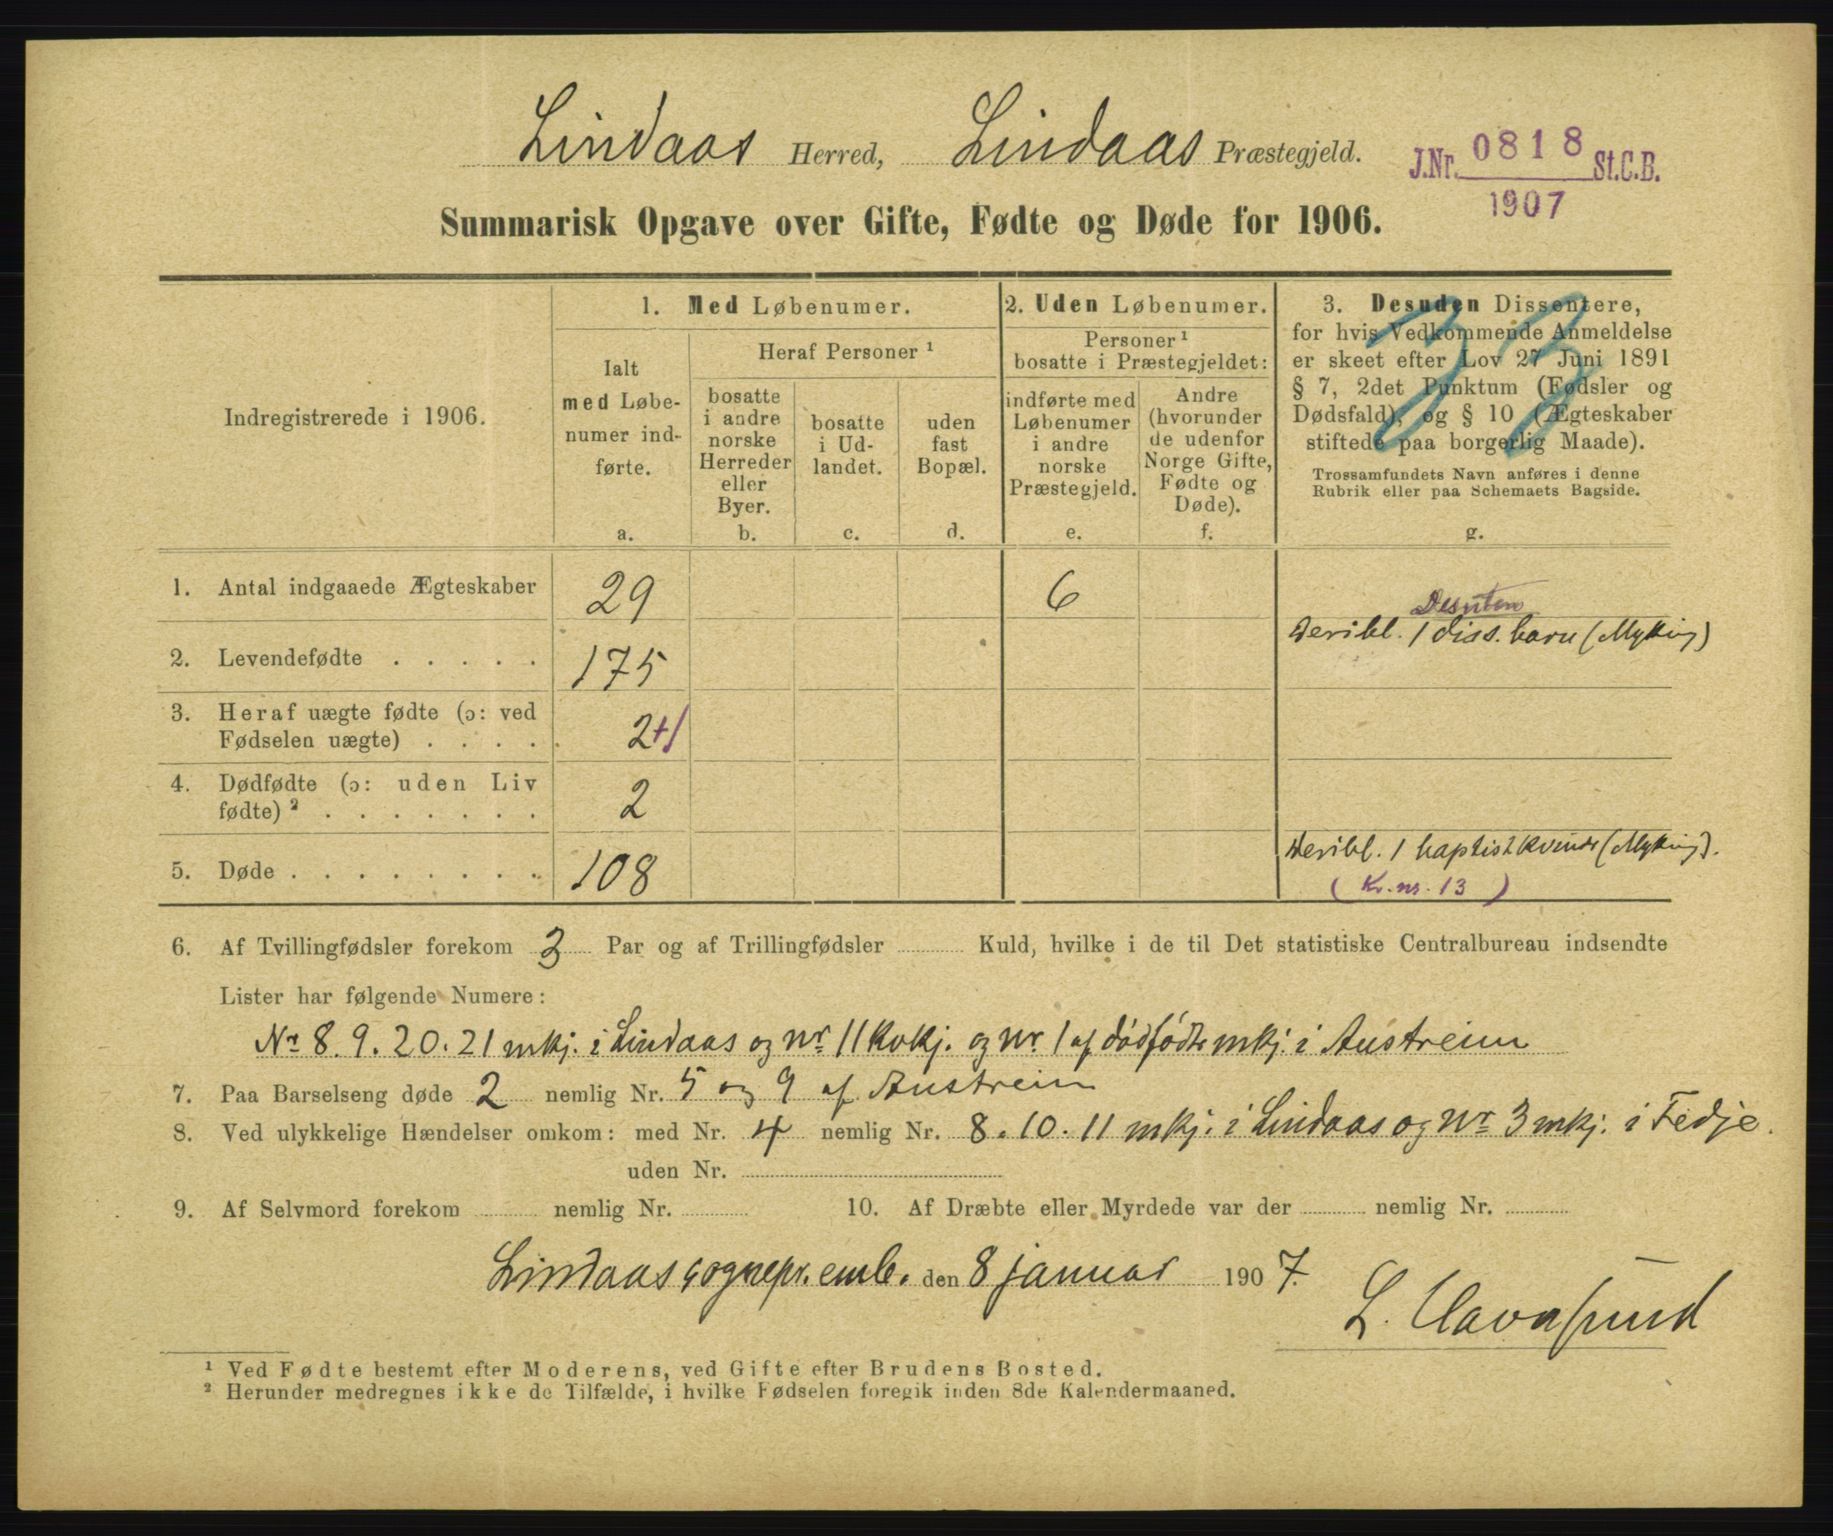 Lindaas Herred, Lindaas Præstegjeld.
J.Nr. 0818 St.C.B.
1907
Summarisk Opgave over Gifte, Fødte og Døde for 1906.
Indregistrerede i 1906.
1. Med Løbenumer.
Ialt
med Løbe-
numer ind-
førte.
a.
Heraf Personer ¹
bosatte
i andre
norske
Herreder
eller
Byer.
b.
bosatte
i Ud-
landet.
c.
uden
fast
Bopæl.
d.
2. Uden Løbenumer.
Personer ¹
bosatte i Præstegjeldet:
indførte med
Løbenumer
i andre
norske
Præstegjeld.
e.
Andre
(hvorunder
de udenfor
Norge Gifte,
Fødte og
Døde).
f.
3. Desuden Dissentere,
for hvis Vedkommende Anmeldelse
er skeet efter Lov 27 Juni 1891
§ 7, 2det Punktum (Fødsler og
Dødsfald), og § 10 (Ægteskaber
stiftede paa borgerlig Maade).
Trossamfundets Navn anføres i denne
Rubrik eller paa Schemaets Bagside.
g.
1. Antal indgaaede Ægteskaber 29 6
Desuten
2. Levendefødte . . . . . 175 Deribl. 1 diss. barn (Myking)
3. Heraf uægte fødte (ɔ: ved
Fødselen uægte) . . . . . 2+1
4. Dødfødte (ɔ: uden Liv
fødte) ² . . . . . . . 2
5. Døde . . . . . . . . . 108 Deribl. 1 baptistkvinde (Myking).
(Kr. nr. 13)
6. Af Tvillingfødsler forekom 3 Par og af Trillingfødsler Kuld, hvilke i de til Det statistiske Centralbureau indsendte
Lister har følgende Numere:
Nr 8. 9. 20. 21 mkj. i Lindaas og nr 11 kvkj. og nr 1 af dødfødte mkj. i Austreim
7. Paa Barselseng døde 2 nemlig Nr. 5 og 9 af Austreim
8. Ved ulykkelige Hændelser omkom: med Nr. 4 nemlig Nr. 8. 10. 11 mkj. i Lindaas og nr 3 mkj. i Fedje.
uden Nr.
9. Af Selvmord forekom nemlig Nr. 10. Af Dræbte eller Myrdede var der nemlig Nr.
Lindaas sognepr.emb. den 8 januar 1907.
L.
¹ Ved Fødte bestemt efter Moderens, ved Gifte efter Brudens Bosted.
² Herunder medregnes ikke de Tilfælde, i hvilke Fødselen foregik inden 8de Kalendermaaned.